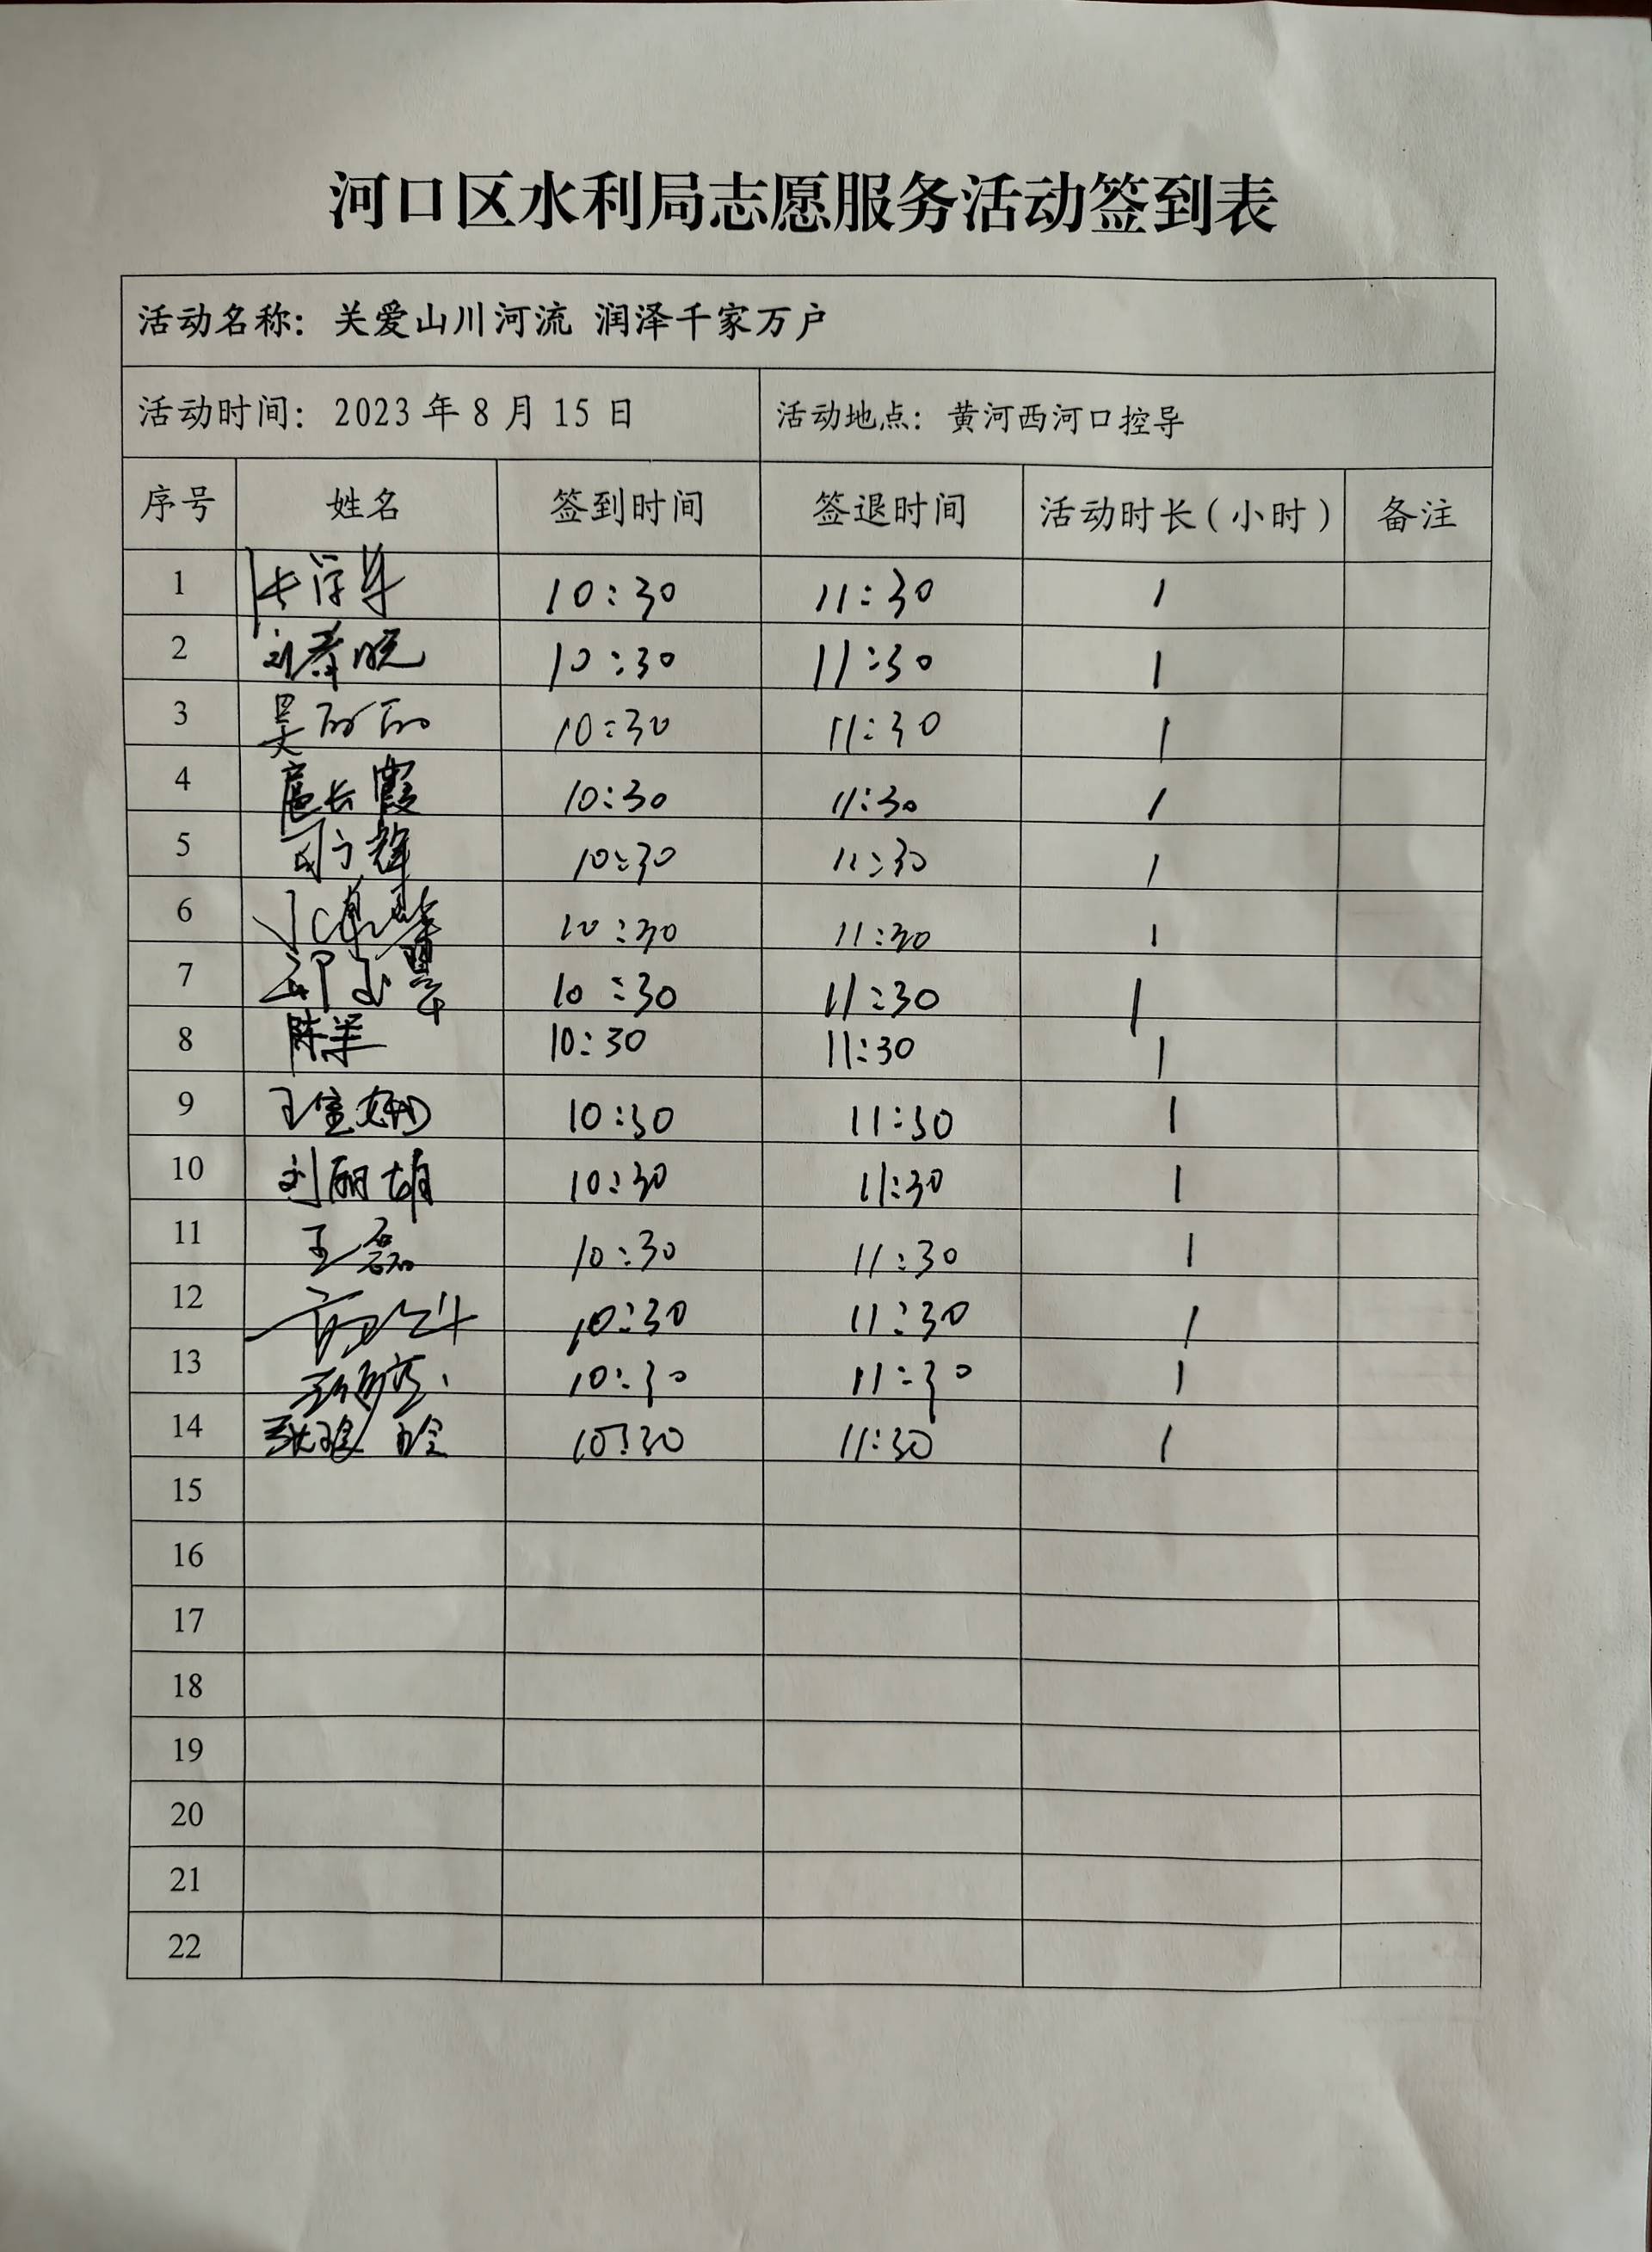 河口区水利局志愿服务活动签到表
活动名称：关爱山川河流 润泽千家万户
活动时间：2023年8月15日 活动地点：黄河西河口控导
序号 姓名 签到时间 签退时间 活动时长（小时） 备注
1 10:30 11:30 1
2 刘春晓 10:30 11:30 1
3 吴丽丽 10:30 11:30 1
4 扈长霞 10:30 11:30 1
5 10:30 11:30 1
6 10:30 11:30 1
7 10:30 11:30 1
8 陈洋 10:30 11:30 1
9 10:30 11:30 1
10 刘丽娟 10:30 11:30 1
11 王磊 10:30 11:30 1
12 10:30 11:30 1
13 10:30 11:30 1
14 10:30 11:30 1
15
16
17
18
19
20
21
22